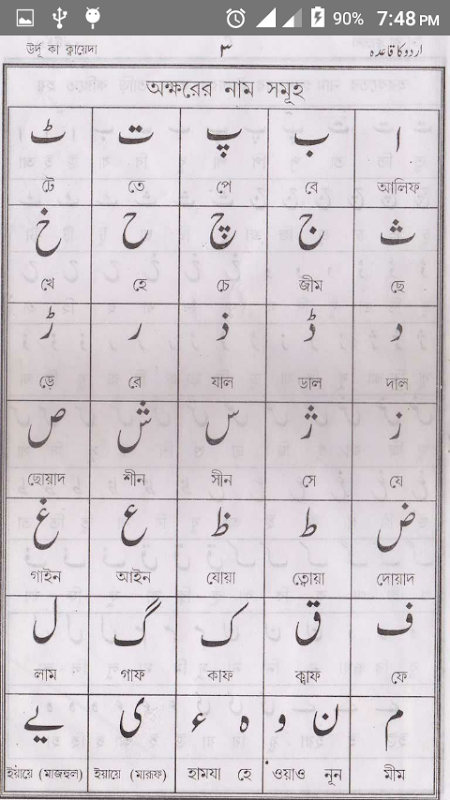 90% 7:48 PM
উর্দু কা ক্বায়েদা ٣ اردو کا قاعدہ
অক্ষরের নাম সমূহ
ا ب پ ت ٹ
টে তে পে বে আলিফ
ث ج چ ح خ
খে হে চে জীম ছে
د ڈ ذ ر ڑ
ড়ে রে যাল ডাল দাল
ز ژ س ش ص
ছোয়াদ শীন সীন সে যে
ض ط ظ ع غ
গাইন আইন যোয়া ত্বোয়া দোয়াদ
ف ق ک گ ل
লাম গাফ কাফ ক্বাফ ফে
م ن و ہ ء ی ے
ইয়ায়ে (মাজহুল) ইয়ায়ে (মারূফ) হামযা হে ওয়াও নূন মীম